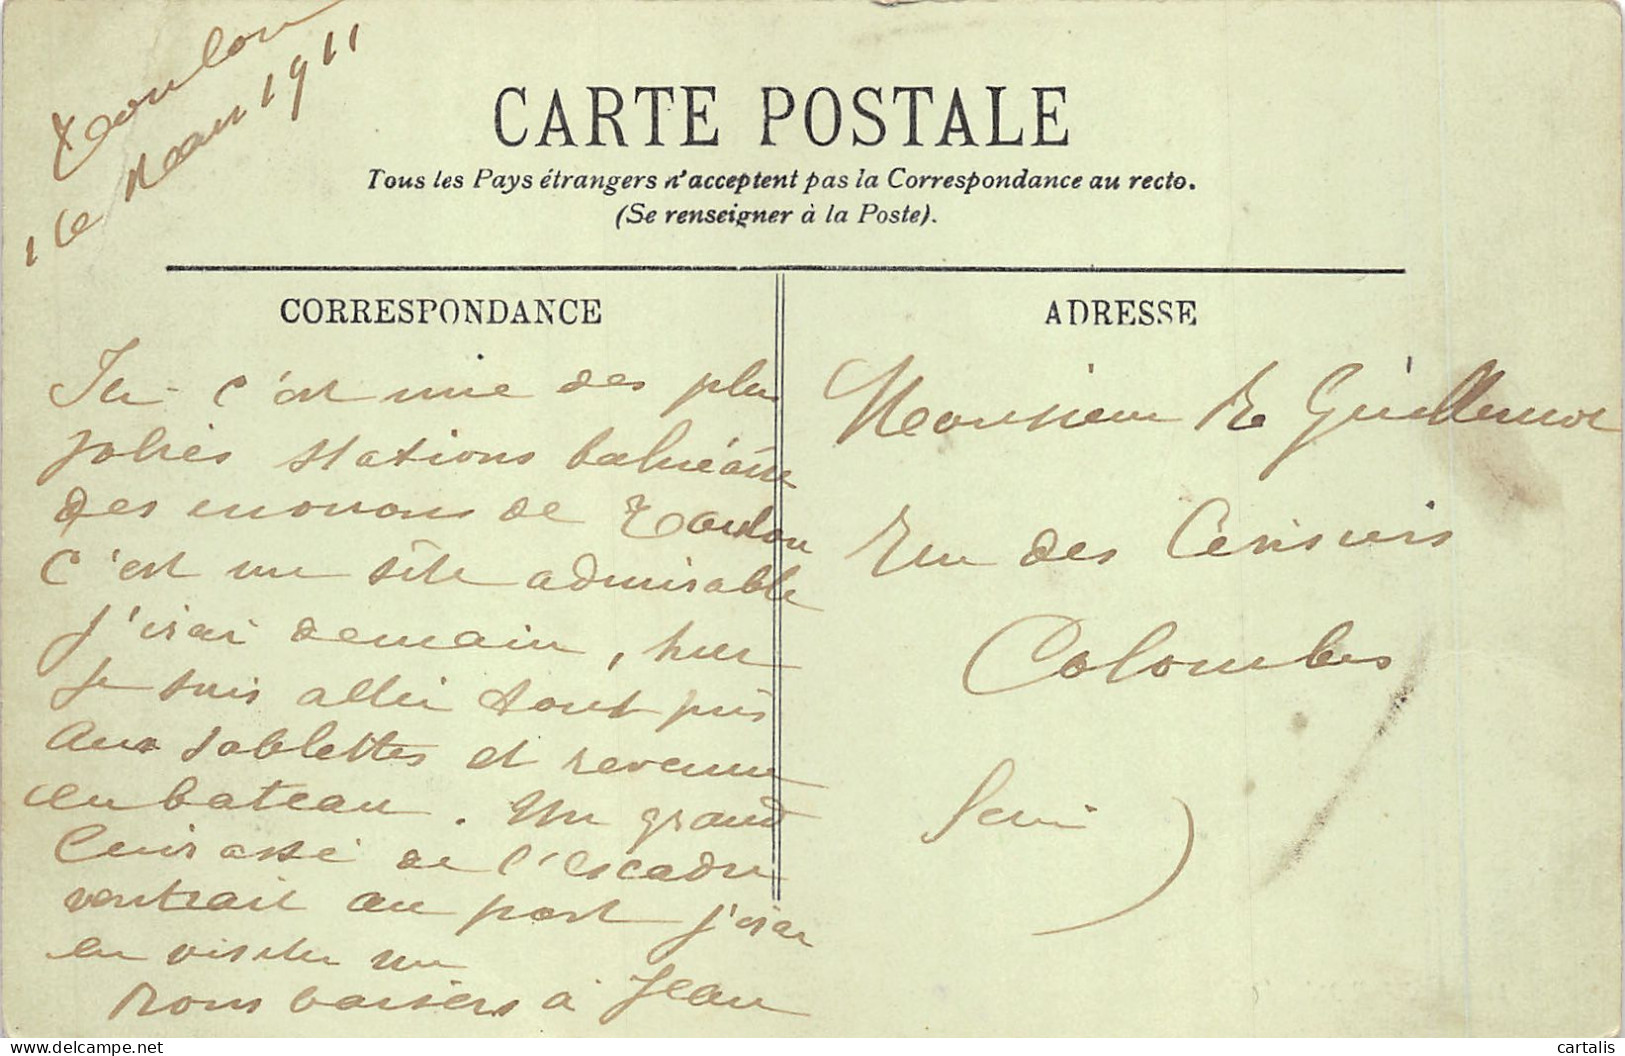 Toulon
1er Mars 1911
CARTE POSTALE
Tous les Pays étrangers n'acceptent pas la Correspondance au recto.
(Se renseigner à la Poste).
CORRESPONDANCE
Ici c'est une des plus
jolies stations balnéaire
des environs de Toulon
C'est un site admirable
j'irai demain, hier
je suis allée tout près
aux Sablettes et revenue
en bateau. Un grand
Cuirassé de l'Escadre
rentrait au port j'irai
en visiter un
Bons baisers à Jean
ADRESSE
Monsieur R Guillemot
Rue des Cerisiers
Colombes
Seine
cartalis